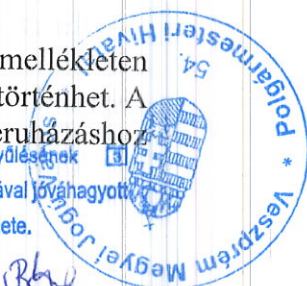 mellékleten
történhet. A
eruházáshoz
yűlésének 3
ával jóváhagyott
ete.
Veszprém Megyei Jogú Város * Polgármesteri Hivatal *
54.